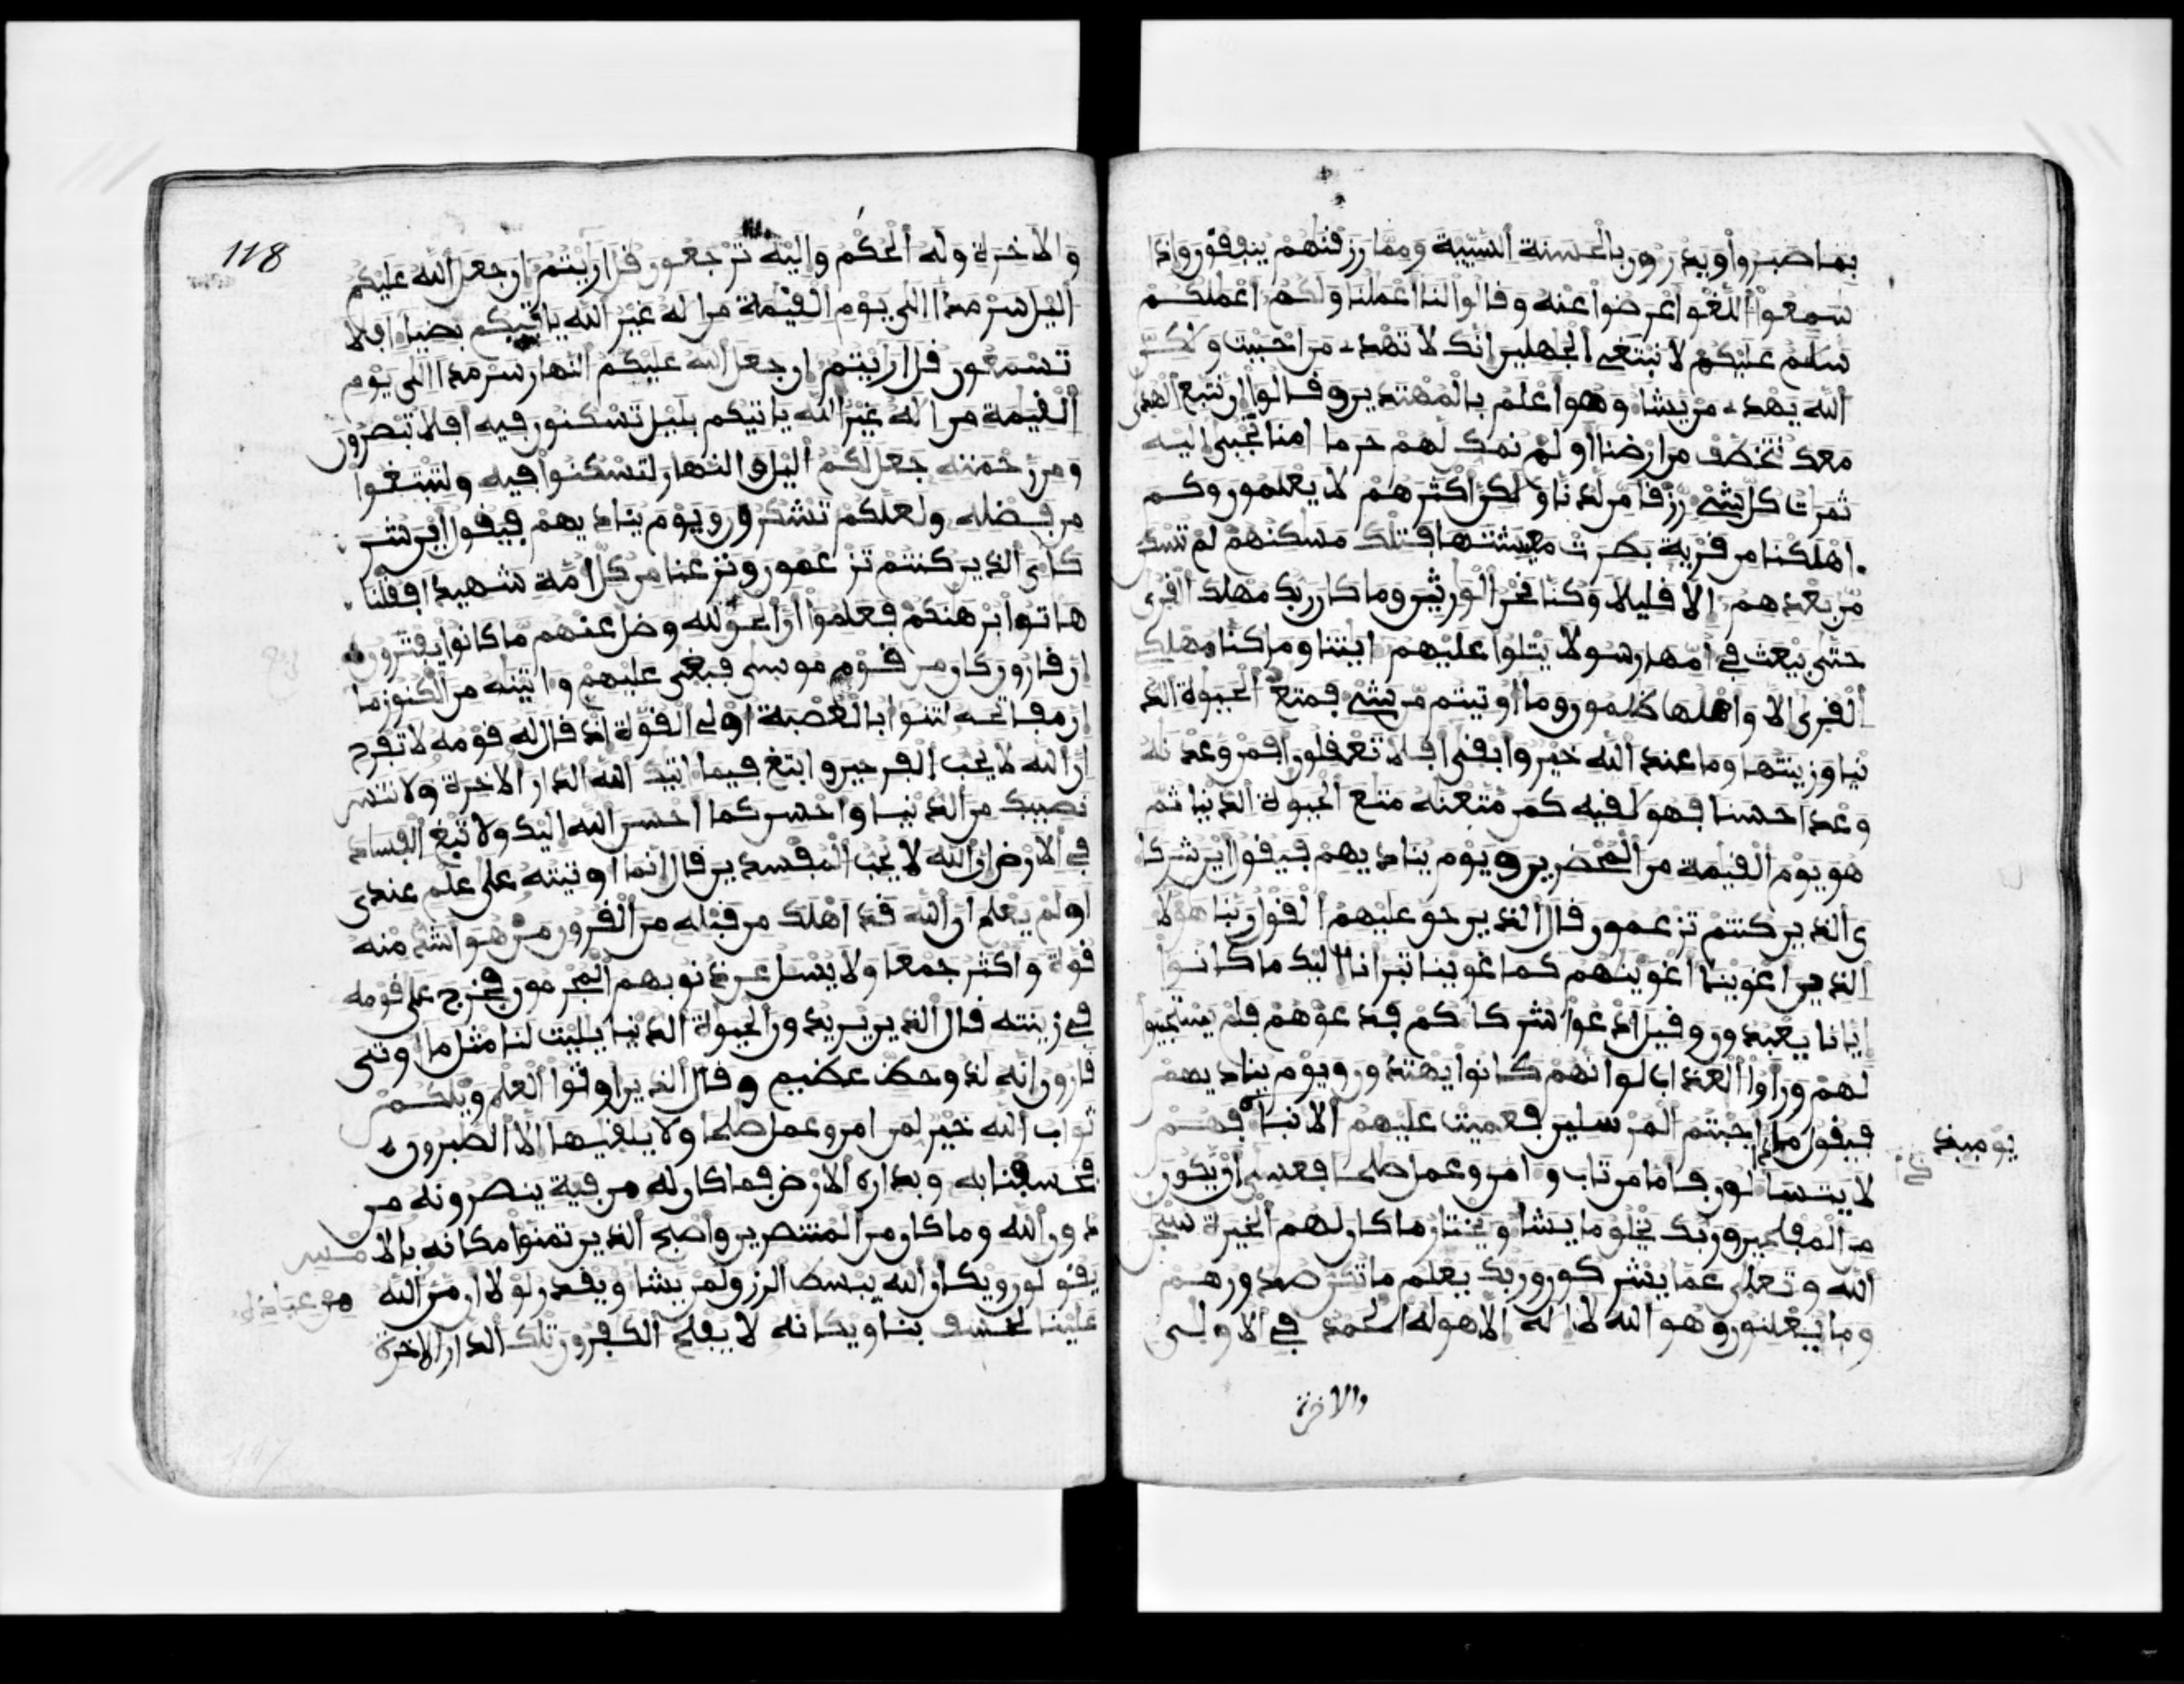 بما صبروا ويدرون بالحسنة السيية ومما رزقنهم ينفقون واذا
سمعوا اللغو اعرضوا عنه وقالوا لنا اعملنا ولكم اعملكم
سلم عليكم لا نبتغى الجهلين انك لا تهدى من احببت ولكن
الله يهدى من يشا وهو اعلم بالمهتدين وقالوا ان نتبع الهدى
معك نتخطف من ارضنا او لم نمكن لهم حرما امنا تجبى اليه
ثمرات كل شىء رزقا من لدنا ولكن اكثرهم لا يعلمون وكم
اهلكنا من قرية بطرت معيشتها فتلك مسكنهم لم تسكن
من بعدهم الا قليلا وكنا نحن الورثين وما كان ربك مهلك القرى
حتى يبعث في امها رسولا يتلوا عليهم ايتنا وما كنا مهلكى
القرى الا واهلها ظلمون وما اوتيتم من شىء فمتع الحيوة الد
نيا وزينتها وما عند الله خير وابقى افلا تعقلون افمن وعدنه
وعدا حسنا فهو لقيه كمن متعنه متع الحيوة الدنيا ثم
هو يوم القيمة من المحضرين ويوم يناديهم فيقول اين شركا
ى الذين كنتم تزعمون قال الذين حق عليهم القول ربنا هولا
الذين اغوينا اغوينهم كما غوينا تبرانا اليك ما كانوا
ايانا يعبدون وقيل ادعوا شركاكم فدعوهم فلم يستجيبوا
لهم وراوا العذاب لو انهم كانوا يهتدون ويوم يناديهم
فيقول ماذا اجبتم المرسلين فعميت عليهم الانبا فهم
يوميذ
لا يتسالون فاما من تاب وامن وعمل صلحا فعسى ان يكون
من المفلحين وربك يخلق ما يشا ويختار ما كان لهم الخيرة سبحن
الله وتعلى عما يشركون وربك يعلم ما تكن صدورهم
وما يعلنون وهو الله لا اله الا هو له الحمد في الاولى
والاخرة
118
والاخرة وله الحكم واليه ترجعون قل اريتم ان جعل الله عليكم
اليل سرمدا الى يوم القيمة من اله غير الله ياتيكم بضيا افلا
تسمعون قل اريتم ان جعل الله عليكم النهار سرمدا الى يوم
القيمة من اله غير الله ياتيكم بليل تسكنون فيه افلا تبصرون
ومن رحمته جعل لكم اليل والنهار لتسكنوا فيه ولتبتغوا
من فضله ولعلكم تشكرون ويوم يناديهم فيقول اين شر
كاى الذين كنتم تزعمون ونزعنا من كل امة شهيدا فقلنا
هاتوا برهنكم فعلموا ان الحق لله وضل عنهم ما كانوا يفترون
ان قارون كان من قوم موسى فبغى عليهم واتينه من الكنوز ما
ان مفاتحه لتنوا بالعصبة اولى القوة اذ قال له قومه لا تفرح
ان الله لا يحب الفرحين وابتغ فيما اتيك الله الدار الاخرة ولا تنس
نصيبك من الدنيا واحسن كما احسن الله اليك ولا تبغ الفساد
في الارض ان الله لا يحب المفسدين قال انما اوتيته على علم عندى
اولم يعلم ان الله قد اهلك من قبله من القرون من هو اشد منه
قوة واكثر جمعا ولا يسل عن ذنوبهم المجرمون فخرج على قومه
في زينته قال الذين يريدون الحيوة الدنيا يليت لنا مثل ما اوتى
قارون انه لذو حظ عظيم وقال الذين اوتوا العلم ويلكم
ثواب الله خير لمن امن وعمل صلحا ولا يلقيها الا الصبرون
فخسفنا به وبداره الارض فما كان له من فية ينصرونه من
دون الله وما كان من المنتصرين واصبح الذين تمنوا مكانه بالامس
يقولون ويكان الله يبسط الرزق لمن يشا ويقدر لولا ان من الله
من عباده
علينا لخسف بنا ويكانه لا يفلح الكفرون تلك الدار الاخرة